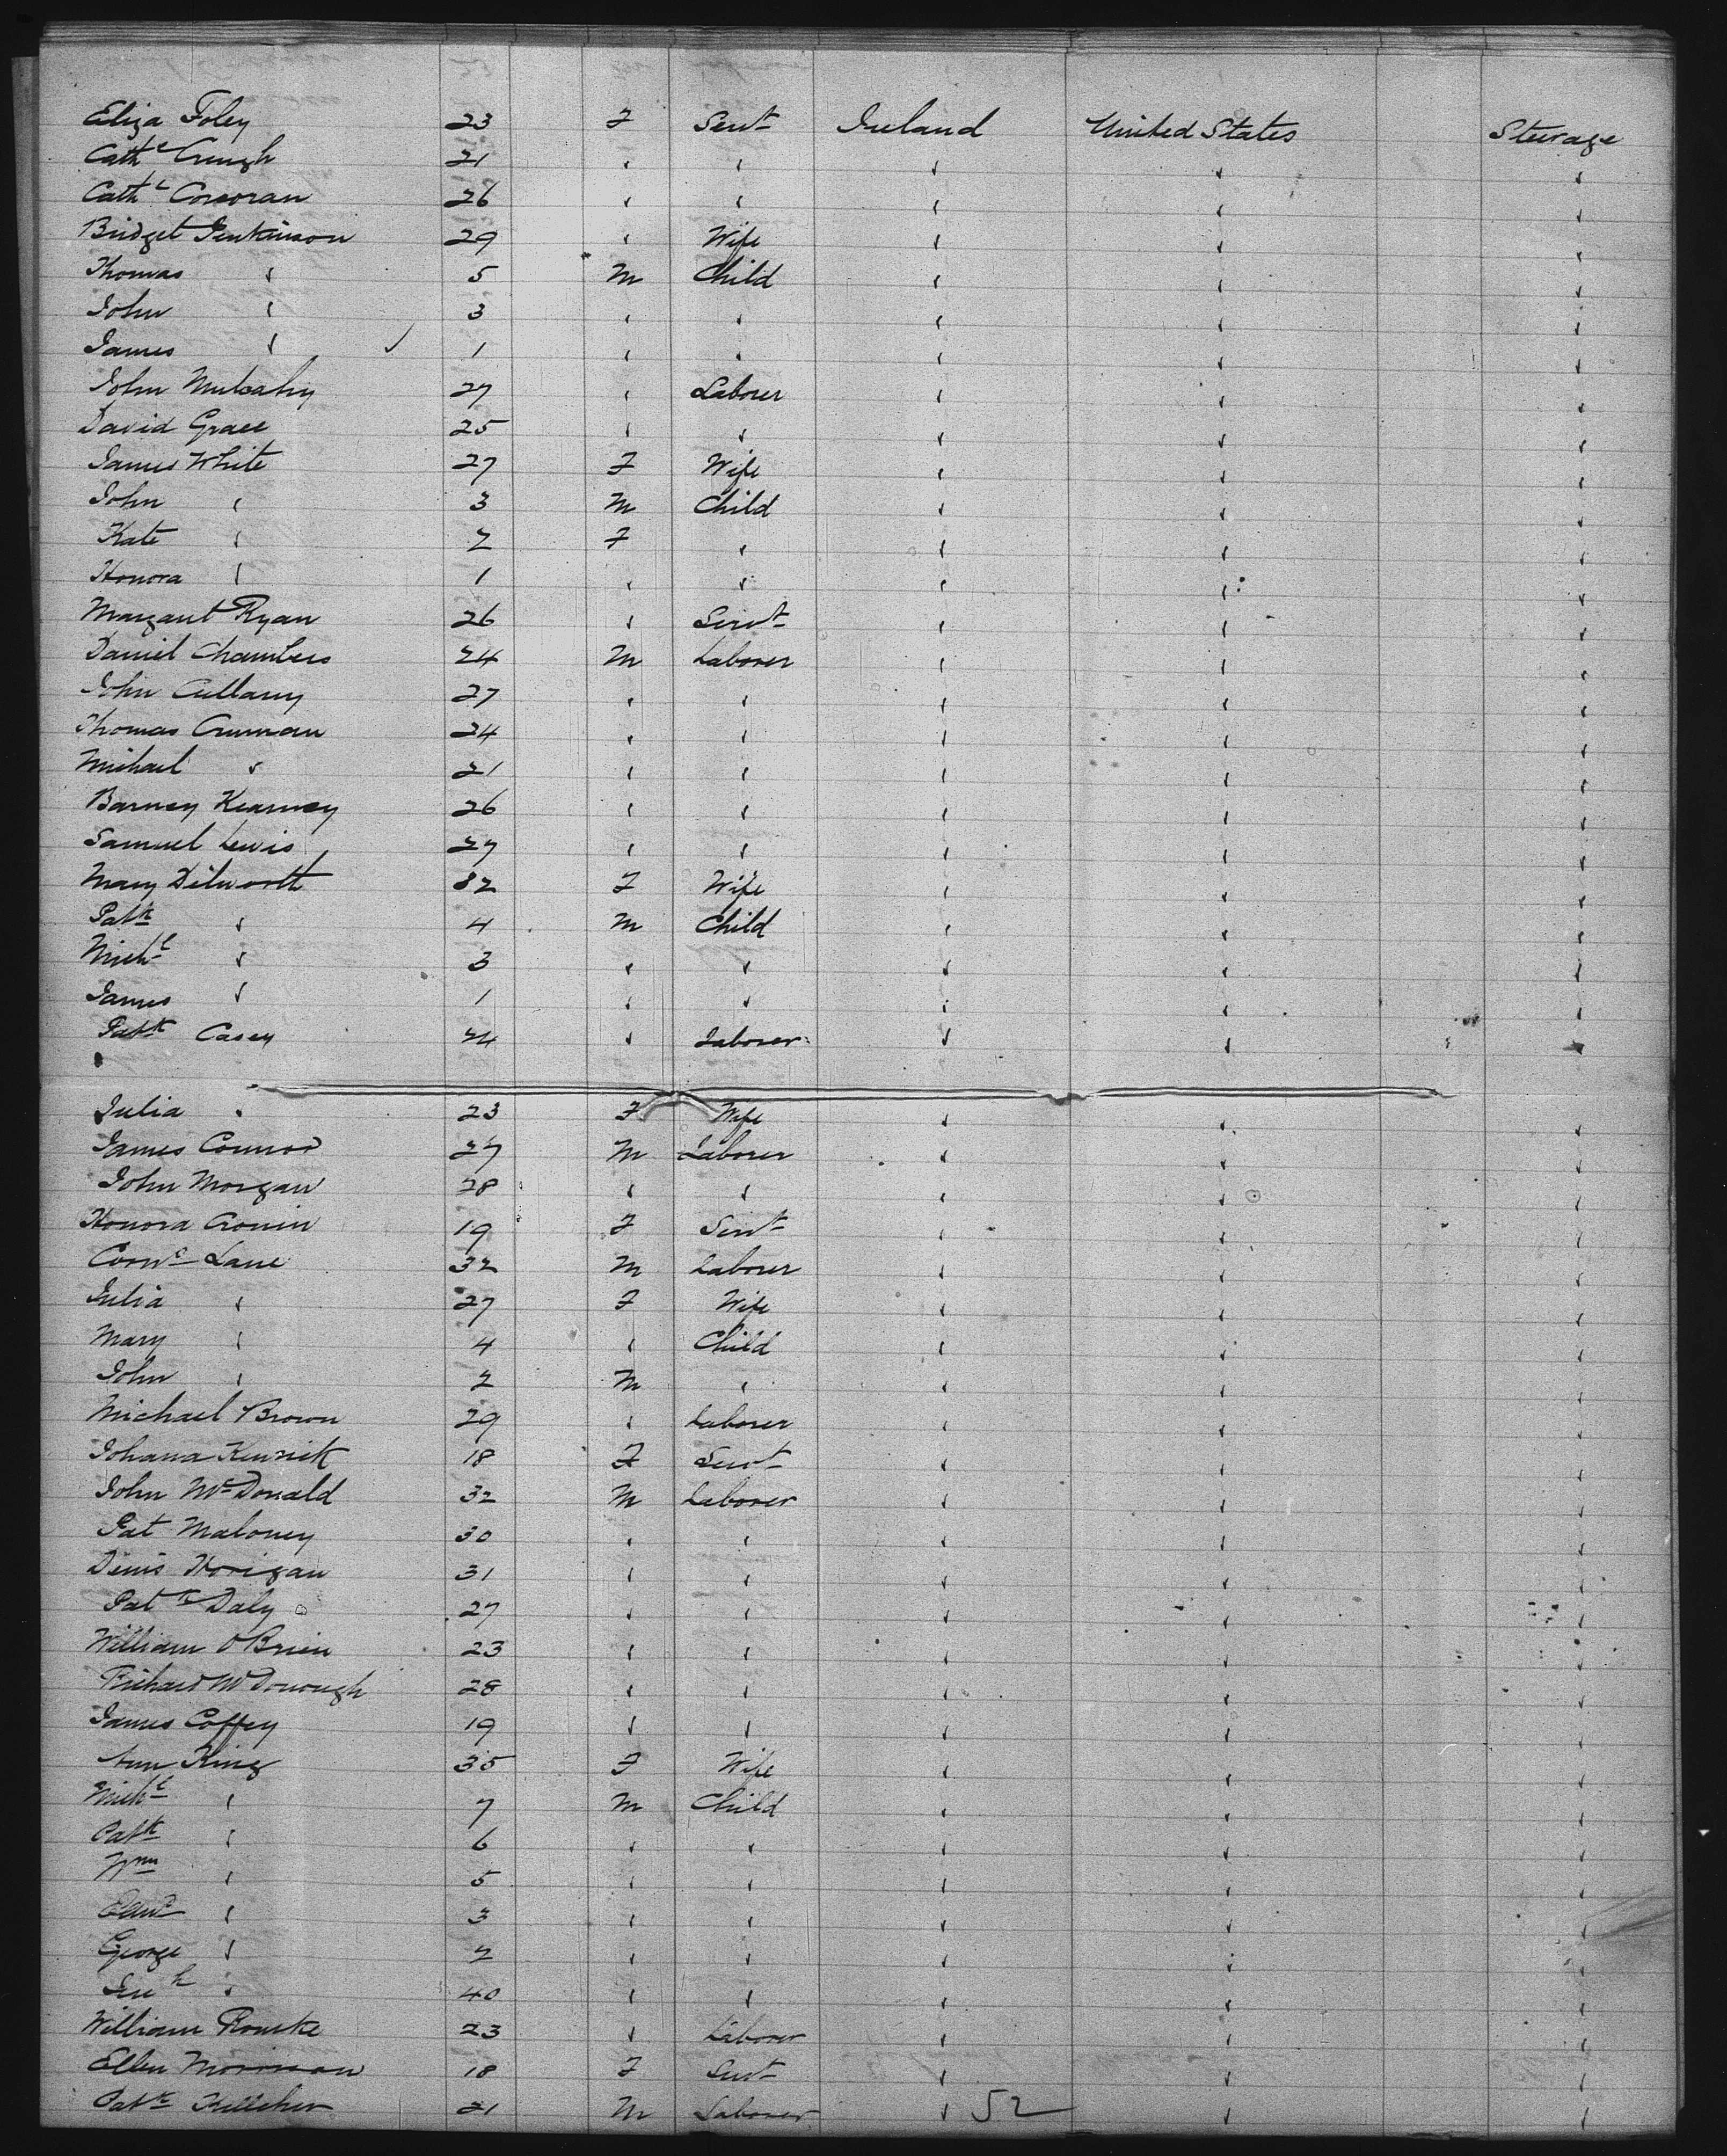 Eliza Foley 23 F Servt Ireland United States Steerage
Cathe Creugh 21 " " " " "
Cathe Corcoran 26 " " " " "
Bridget Jenkinson 29 " Wife " " "
Thomas " 5 M Child " " "
John " 3 " " " " "
James " ✓ 1 " " " " "
John Mulcahy 27 " Laborer " " "
David Grace 25 " " " " "
James White 27 F Wife " " "
John " 3 M Child " " "
Kate " 2 F " " " "
Honora " 1 " " " " "
Margaret Ryan 26 " Servt " " "
Daniel Chambers 24 M Laborer " " "
John Cullany 27 " " " " "
Thomas 24 " " " " "
Michael " 21 " " " " "
Barney Kearney 26 " " " " "
Samuel Lewis 27 " " " " "
Mary Dilworth 32 F Wife " " "
Patk " 4 M Child " " "
Michl " 3 " " " " "
James " 1 " " " " "
Patk Casey 24 " Laborer " " "
Julia " 23 F Wife " " "
James Connor 27 M Laborer " " "
John Morgan 28 " " " " "
Honora Cronin 19 F Servt " " "
Corns Lane 32 M Laborer " " "
Julia " 27 F Wife " " "
Mary " 4 " Child " " "
John " 2 M " " " "
Michael Brown 29 " Laborer " " "
Johana Kenrick 18 F Servt " " "
John McDonald 32 M Laborer " " "
Pat Maloney 30 " " " " "
Denis Horigan 31 " " " " "
Patk Daly 27 " " " " "
William OBrien 23 " " " " "
Richard McDonough 28 " " " " "
James Coffey 19 " " " " "
Ann King 35 F Wife " " "
Michl " 7 M Child " " "
Patk " 6 " " " " "
Wm " 5 " " " " "
Edwd " 3 " " " " "
George " 2 " " " " "
" 40 " " " " "
William Rourke 23 " Laborer " " "
Ellen Morrison 18 F Servt " " "
Patk Kelleher 21 M Laborer " 52 " "